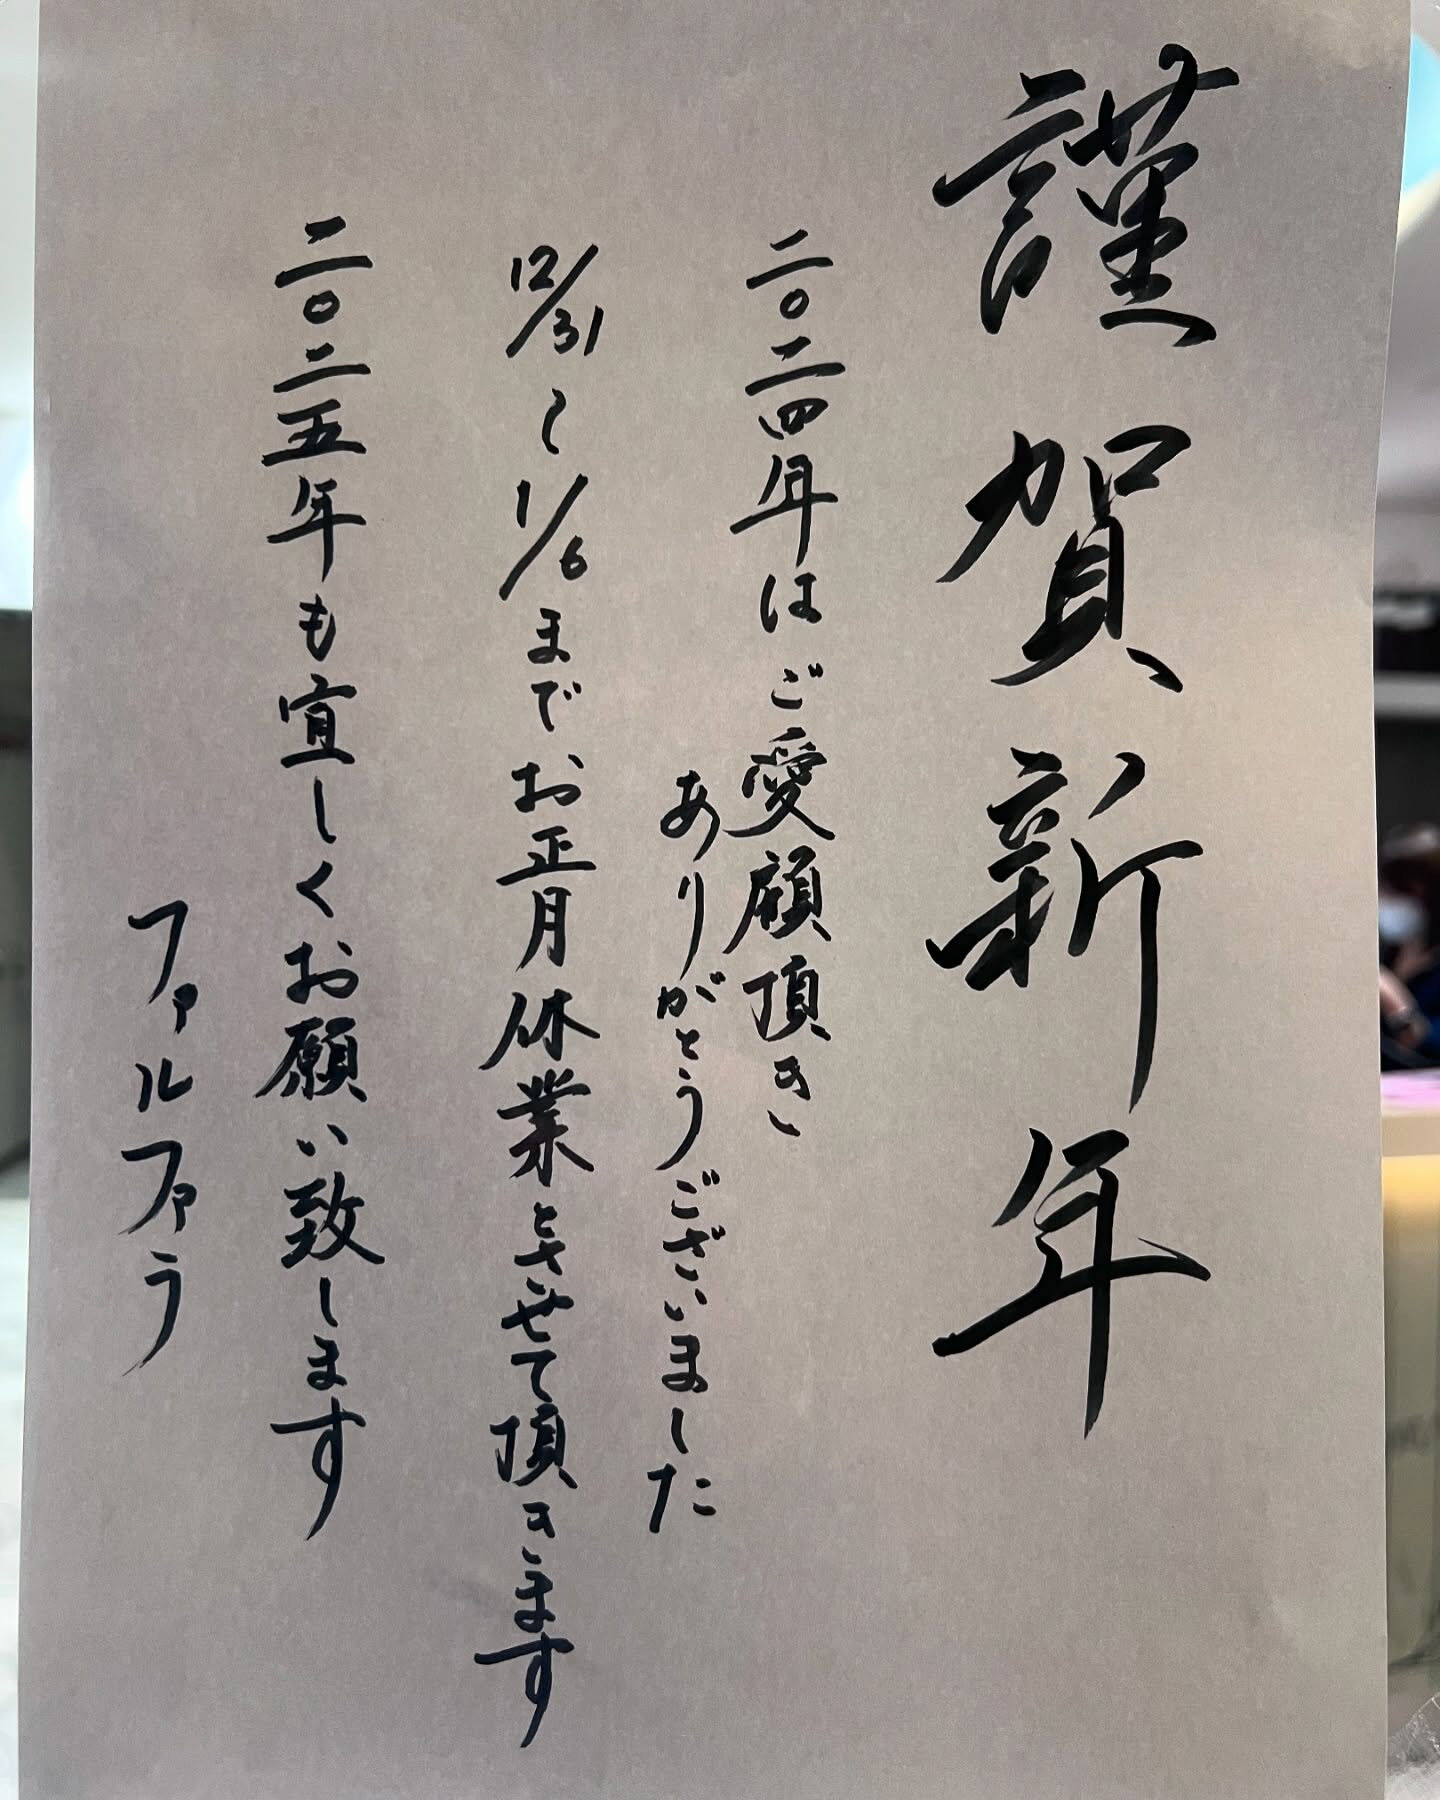 謹賀新年
二〇二四年はご愛顧頂き
ありがとうございました
12/31〜1/6までお正月休業とさせて頂きます
二〇二五年も宜しくお願い致します
ファルファラ